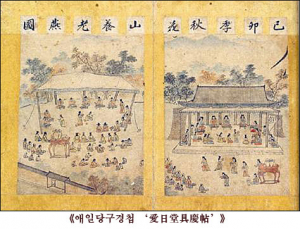 己卯季秋花
山養老燕圖
《애일당구경첩 ‘愛日堂具慶帖’》